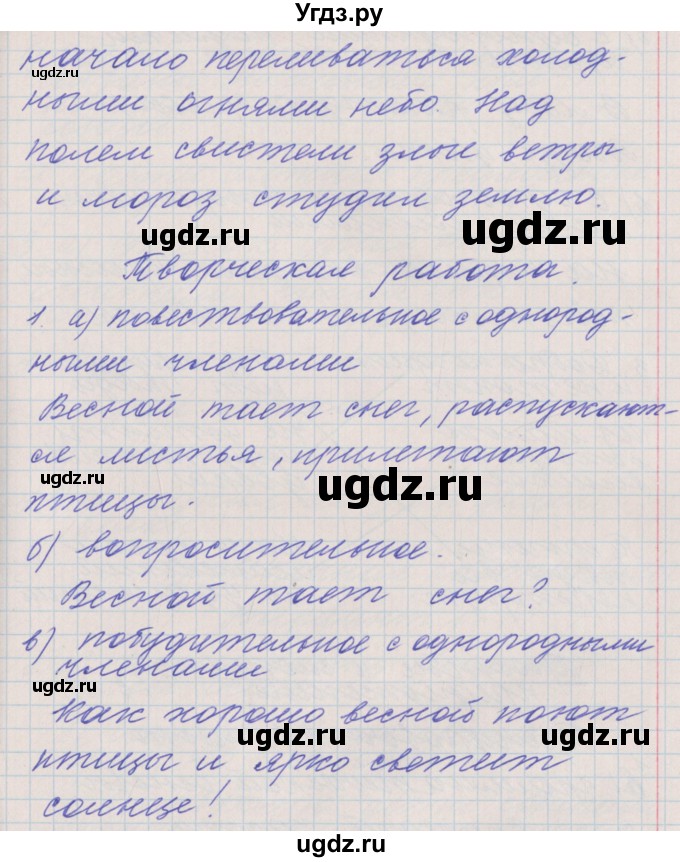 Угдз.ру
начало переливаться холод-
ugdz.ru
ugdz.ru
ными огнями небо. Над
полем свистели злые ветры
и мороз студил землю.
ugdz.ru
ugdz.ru
Творческая работа.
1. а) повествовательное с однород-
ными членами
Весной тает снег, распускают-
ся листья, прилетают
ugdz.ru
ugdz.ru
птицы.
б) вопросительное.
Весной тает снег?
в) побудительное с однородными
членами
ugdz.ru
Как хорошо весной поют
ugdz.ru
ugdz.ru
птицы и ярко светит
солнце!
ugdz.ru